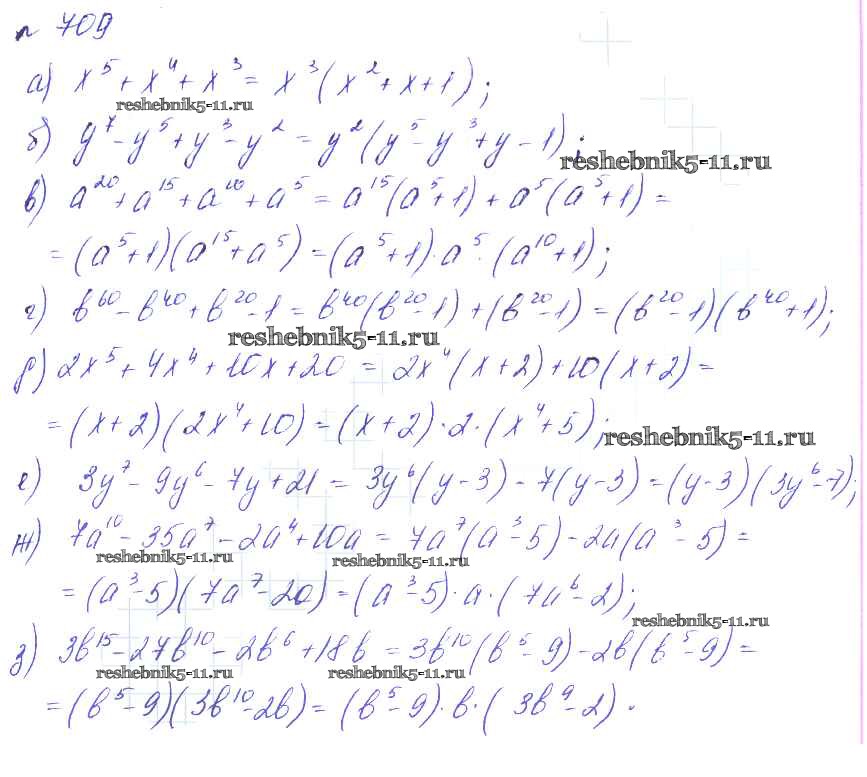 № 709
а) x⁵ + x⁴ + x³ = x³(x² + x + 1);
reshebnik5-11.ru
б) y⁷ - y⁵ + y³ - y² = y²(y⁵ - y³ + y - 1);
reshebnik5-11.ru
в) a²⁰ + a¹⁵ + a¹⁰ + a⁵ = a¹⁵(a⁵ + 1) + a⁵(a⁵ + 1) =
= (a⁵ + 1)(a¹⁵ + a⁵) = (a⁵ + 1) · a⁵ · (a¹⁰ + 1);
г) b⁶⁰ - b⁴⁰ + b²⁰ - 1 = b⁴⁰(b²⁰ - 1) + (b²⁰ - 1) = (b²⁰ - 1)(b⁴⁰ + 1);
reshebnik5-11.ru
д) 2x⁵ + 4x⁴ + 10x + 20 = 2x⁴(x + 2) + 10(x + 2) =
= (x + 2)(2x⁴ + 10) = (x + 2) · 2 · (x⁴ + 5);
reshebnik5-11.ru
е) 3y⁷ - 9y⁶ - 7y + 21 = 3y⁶(y - 3) - 7(y - 3) = (y - 3)(3y⁶ - 7);
ж) 7a¹⁰ - 35a⁷ - 2a⁴ + 10a = 7a⁷(a³ - 5) - 2a(a³ - 5) =
reshebnik5-11.ru reshebnik5-11.ru
= (a³ - 5)(7a⁷ - 2a) = (a³ - 5) · a · (7a⁶ - 2);
reshebnik5-11.ru
з) 3b¹⁵ - 27b¹⁰ - 2b⁶ + 18b = 3b¹⁰(b⁵ - 9) - 2b(b⁵ - 9) =
reshebnik5-11.ru reshebnik5-11.ru
= (b⁵ - 9)(3b¹⁰ - 2b) = (b⁵ - 9) · b · (3b⁹ - 2).